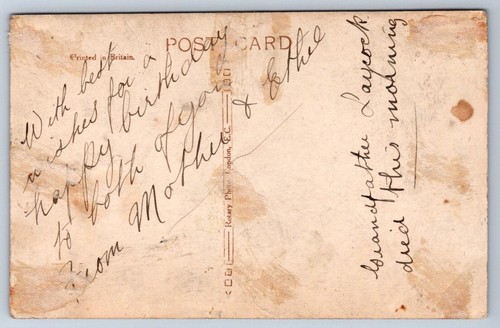 POST CARD
Printed in Britain.
With best
wishes for a
happy birthday
to both of you
From Mother & Ethel
Rotary Photo, London, E.C.
Grandfather Laycock
died this morning